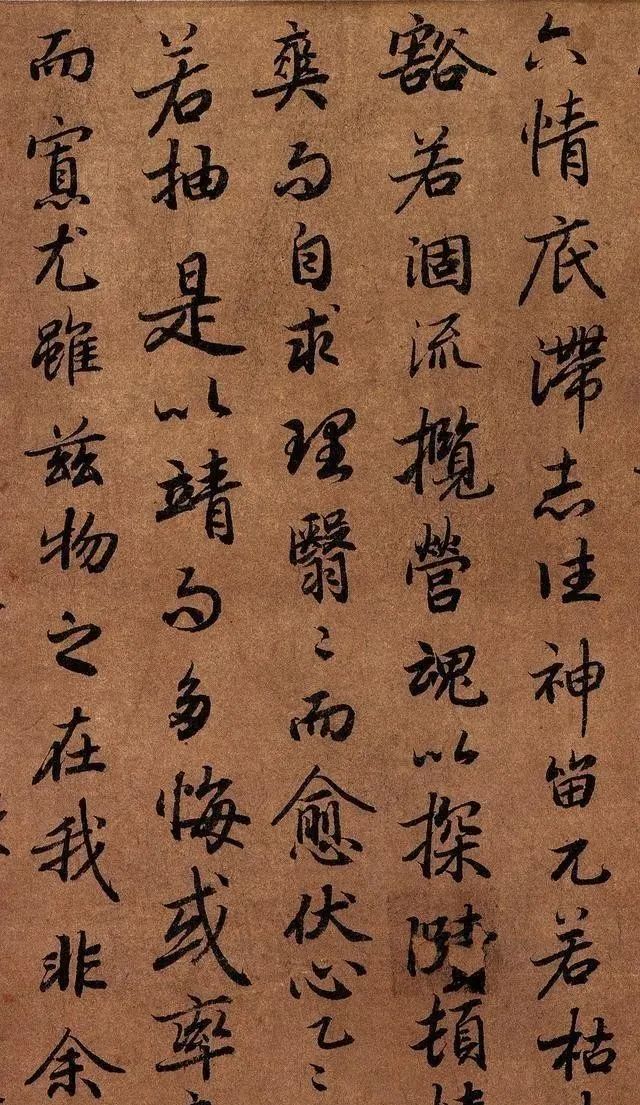 六情底滯志往神留兀若枯
豁若涸流攬營魂以探賾頓
爽於自求理翳〻而愈伏心乙〻
若抽是以靖於多悔或率
而寡尤雖茲物之在我非余